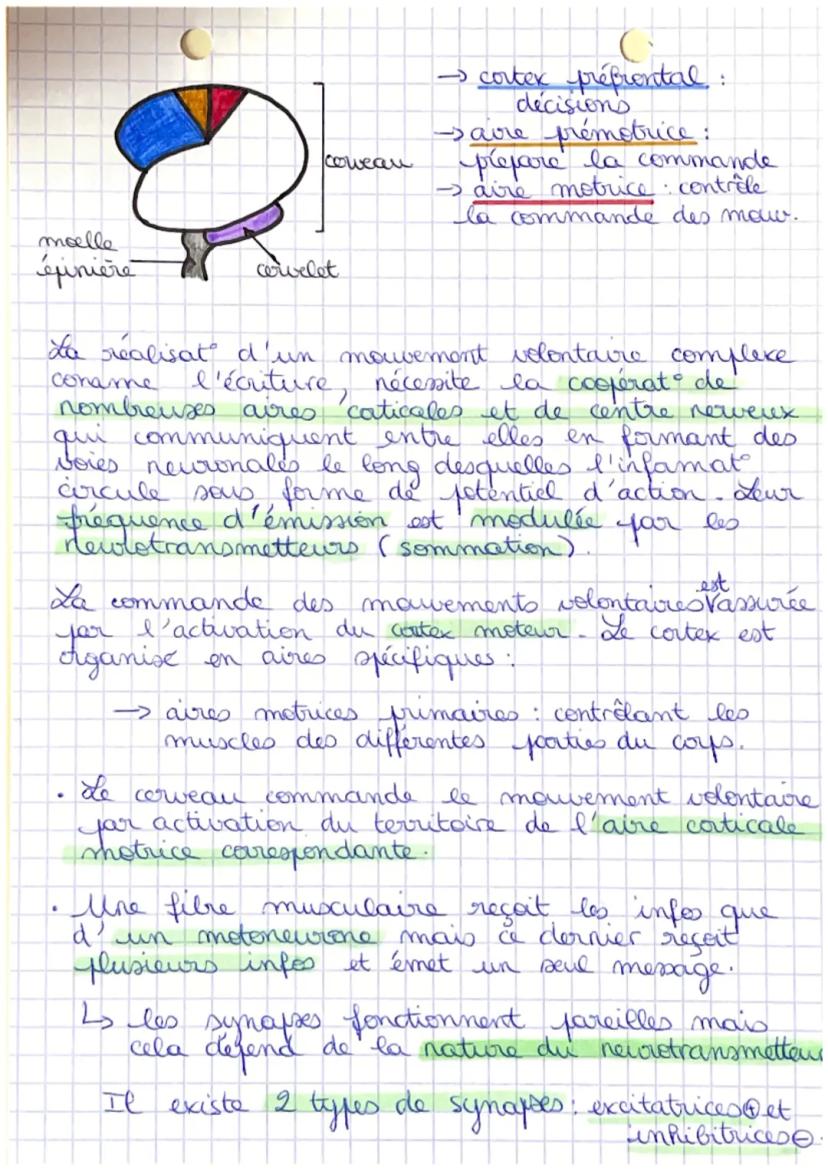 → cortex préfrontal :
décisions
→ aire prémotrice :
prépare la commande
→ aire motrice : contrôle
la commande des mouv.
cerveau
moelle
épinière
cervelet
La réalisat° d'un mouvement volontaire complexe
comme l'écriture, nécessite la coopérat° de
nombreuses aires corticales et de centre nerveux
qui communiquent entre elles en formant des
voies neuronales le long desquelles l'informat°
circule sous forme de potentiel d'action. Leur
fréquence d'émission est modulée par les
neurotransmetteurs (sommation).
La commande des mouvements volontaires est assurée
par l'activation du cortex moteur. Le cortex est
organisé en aires spécifiques :
→ aires motrices primaires : contrôlant les
muscles des différentes parties du corps.
• Le cerveau commande le mouvement volontaire
par activation du territoire de l'aire corticale
motrice correspondante.
• Une fibre musculaire reçoit les infos que
d'un motoneurone mais ce dernier reçoit
plusieurs infos et émet un seul message.
↳ les synapses fonctionnent pareilles mais
cela dépend de la nature du neurotransmetteur
Il existe 2 types de synapses : excitatrices ⊕ et
inhibitrices ⊖.